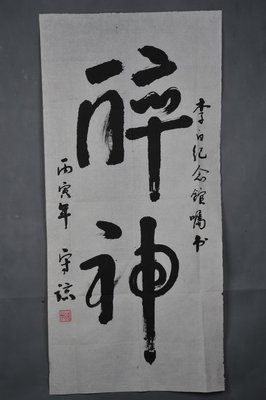 李白纪念馆嘱书
醉神
丙寅年 守谅